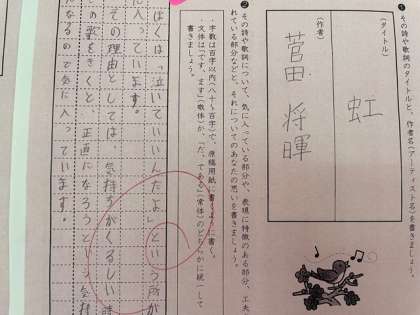 ❶その詩や歌詞のタイトルと、作者名(アーティスト名)を書きましょう。
(タイトル)
虹
(作者)
菅田 将暉
❷その詩や歌詞について、気に入っている部分や、表現に特徴のある部分、工夫
れている部分などと、それについてのあなたの思いを書きましょう。
・字数は百字以内(八十~百字)で、原稿用紙に書くように書く。
・文体は「です、ます」(敬体)か、「だ、である」(常体)のどちらかに統一して
書きましょう。
ぼくは「泣いていいんだよ」という所が
に入っています。
その理由としては、気持ちがくるしい時
の歌をきくと、正直になろうという気持
になるので気に入っています。